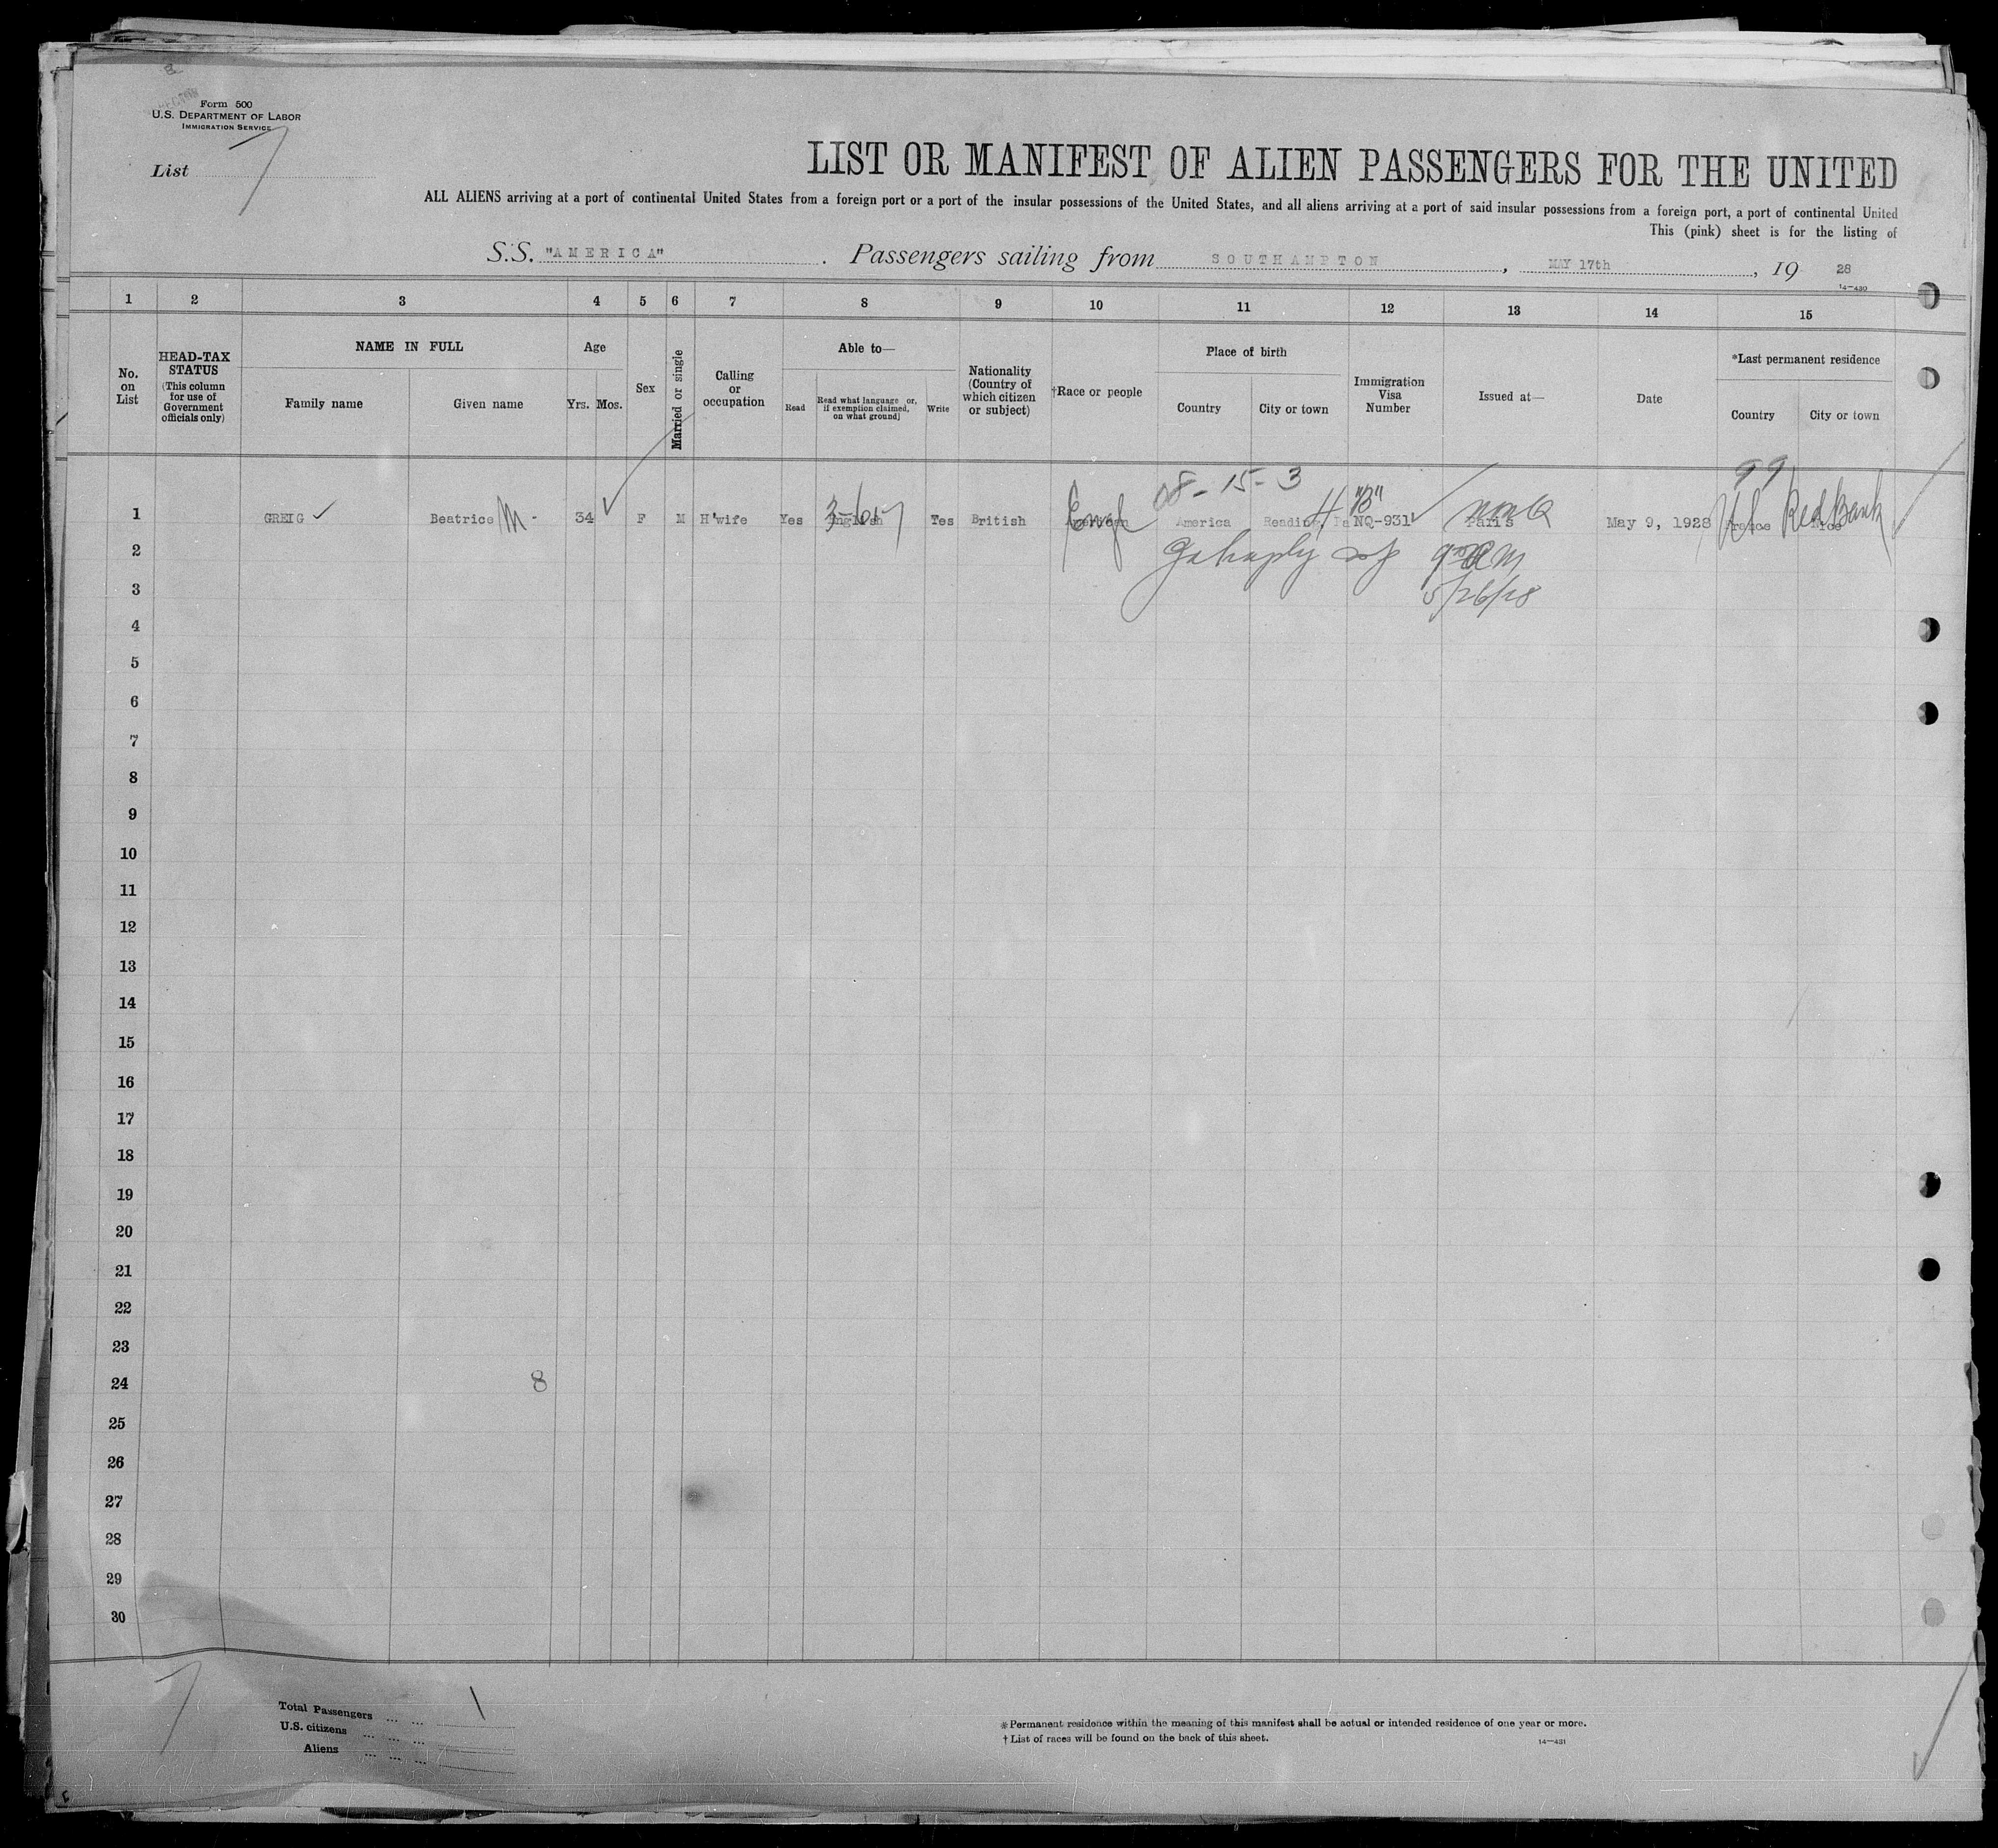 Form 500
U.S. DEPARTMENT OF LABOR
IMMIGRATION SERVICE
List 7
LIST OR MANIFEST OF ALIEN PASSENGERS FOR THE UNITED
ALL ALIENS arriving at a port of continental United States from a foreign port or a port of the insular possessions of the United States, and all aliens arriving at a port of said insular possessions from a foreign port, a port of continental United
This (pink) sheet is for the listing of
S.S. "AMERICA". Passengers sailing from SOUTHAMPTON, MAY 17th, 19 28
14—430
1 2 3 4 5 6 7 8 9 10 11 12 13 14 15
No. on List
HEAD-TAX STATUS (This column for use of Government officials only)
NAME IN FULL
Family name
Given name
Age
Yrs. Mos.
Sex
Married or single
Calling or occupation
Able to—
Read
Read what language or, if exemption claimed, on what ground]
Write
Nationality (Country of which citizen or subject)
†Race or people
Place of birth
Country
City or town
Immigration Visa Number
Issued at—
Date
*Last permanent residence
Country
City or town
08-15-3
99
1 GREIG ✓ Beatrice M. 34 ✓ F M H'wife Yes English Yes British Engl America Reading, Pa 4 "B" NQ-931 ✓ Paris NonQ May 9, 1928 France US Nice Red Bank
2
5/26/28
3
4
5
6
7
8
9
10
11
12
13
14
15
16
17
18
19
20
21
22
23
24
8
25
26
27
28
29
30
7
Total Passengers ... ... 1
U.S. citizens ... ... ...
Aliens ... ... ...
* Permanent residence within the meaning of this manifest shall be actual or intended residence of one year or more.
† List of races will be found on the back of this sheet.
14—431